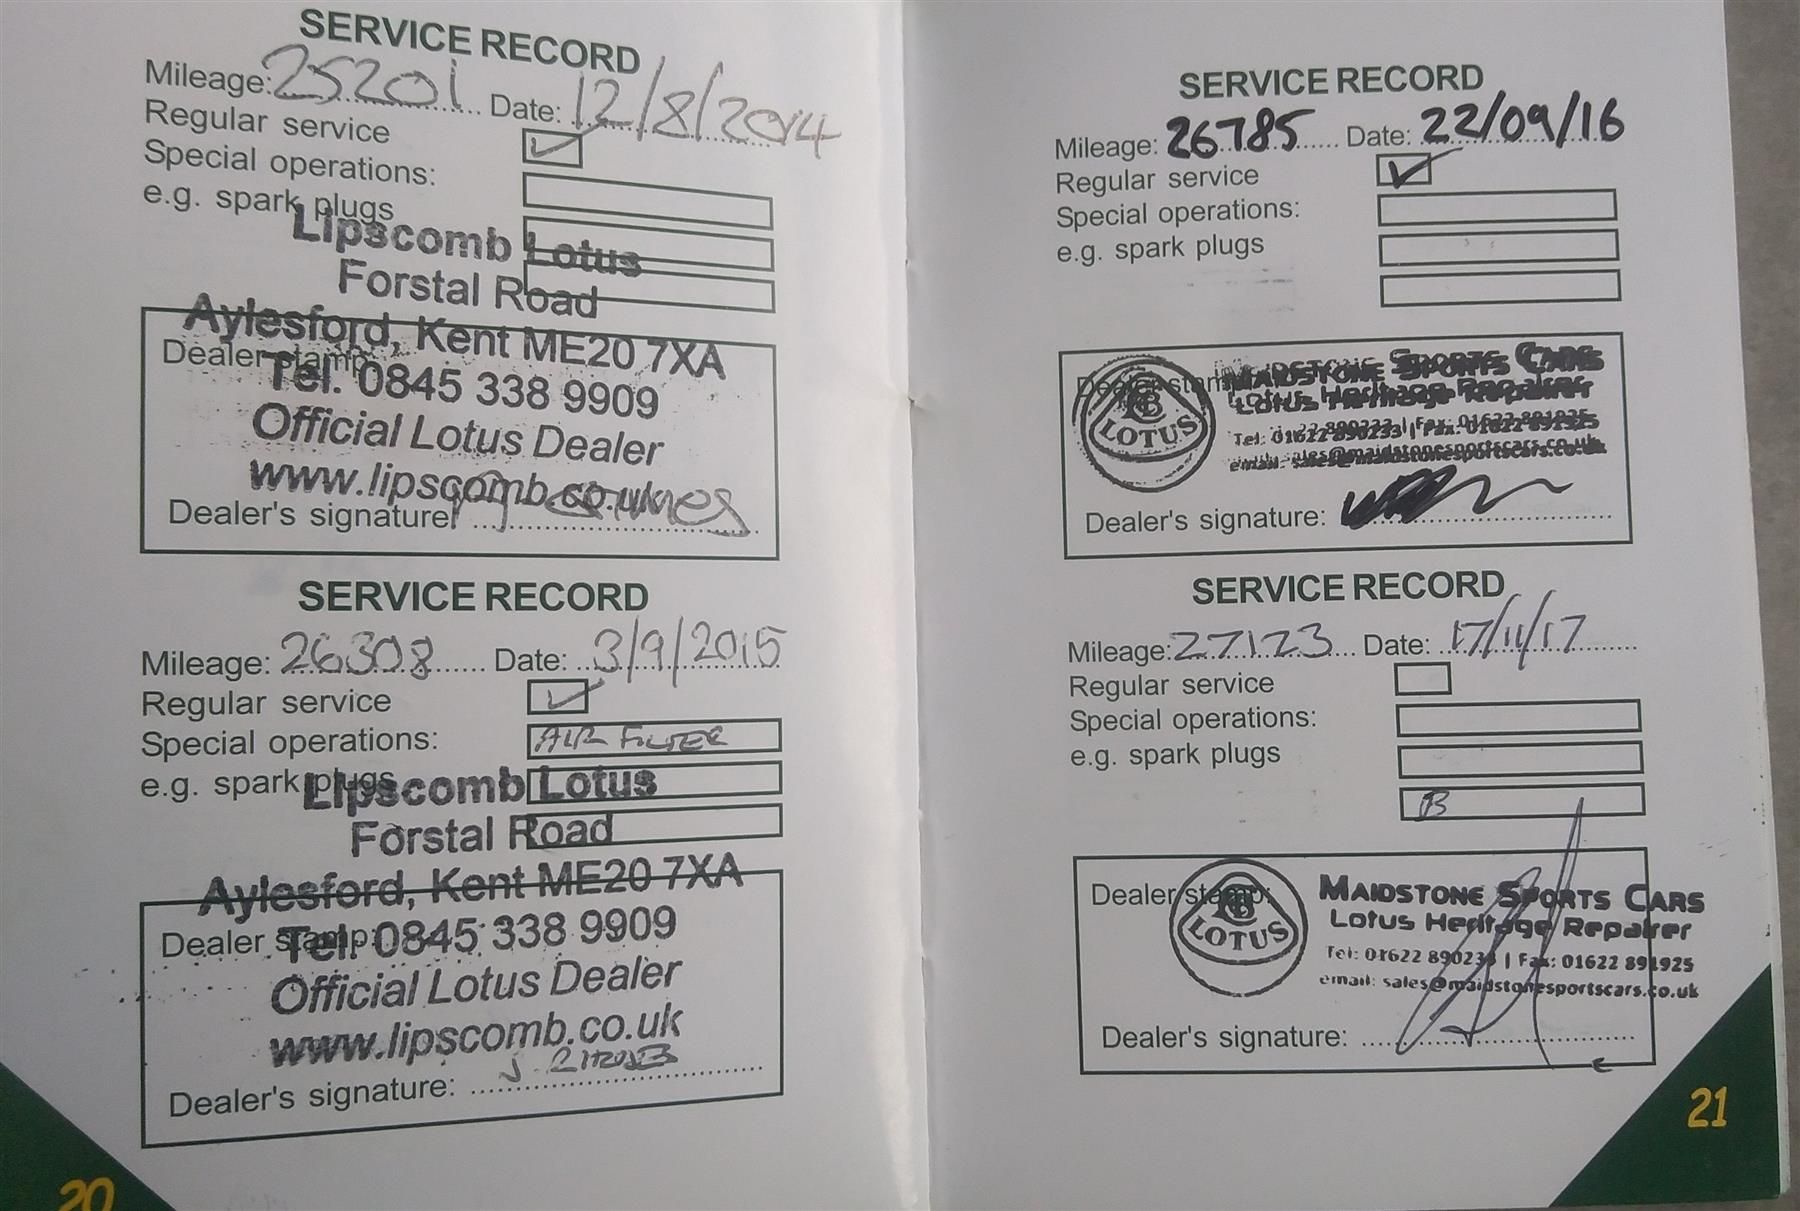 SERVICE RECORD
Mileage: 25201 Date: 12/8/2014
Regular service
Special operations:
e.g. spark plugs
Lipscomb Lotus
Forstal Road
Aylesford, Kent ME20 7XA
Dealer stamp:
Tel: 0845 338 9909
Official Lotus Dealer
www.lipscomb.co.uk
Dealer's signature:
SERVICE RECORD
Mileage: 26308 Date: 3/9/2015
Regular service
Special operations: AIR FILTER
e.g. spark plugs
Lipscomb Lotus
Forstal Road
Aylesford, Kent ME20 7XA
Dealer stamp:
Tel: 0845 338 9909
Official Lotus Dealer
www.lipscomb.co.uk
Dealer's signature:
20
SERVICE RECORD
Mileage: 26785 Date: 22/09/16
Regular service
Special operations:
e.g. spark plugs
Dealer stamp:
LOTUS
MAIDSTONE SPORTS CARS
Lotus Heritage Repairer
Tel: 01622 890233 | Fax: 01622 891925
email: sales@maidstonesportscars.co.uk
Dealer's signature:
SERVICE RECORD
Mileage: 27123 Date: 17/11/17
Regular service
Special operations:
e.g. spark plugs
B
Dealer stamp:
LOTUS
MAIDSTONE SPORTS CARS
Lotus Heritage Repairer
Tel: 01622 890233 | Fax: 01622 891925
email: sales@maidstonesportscars.co.uk
Dealer's signature:
21